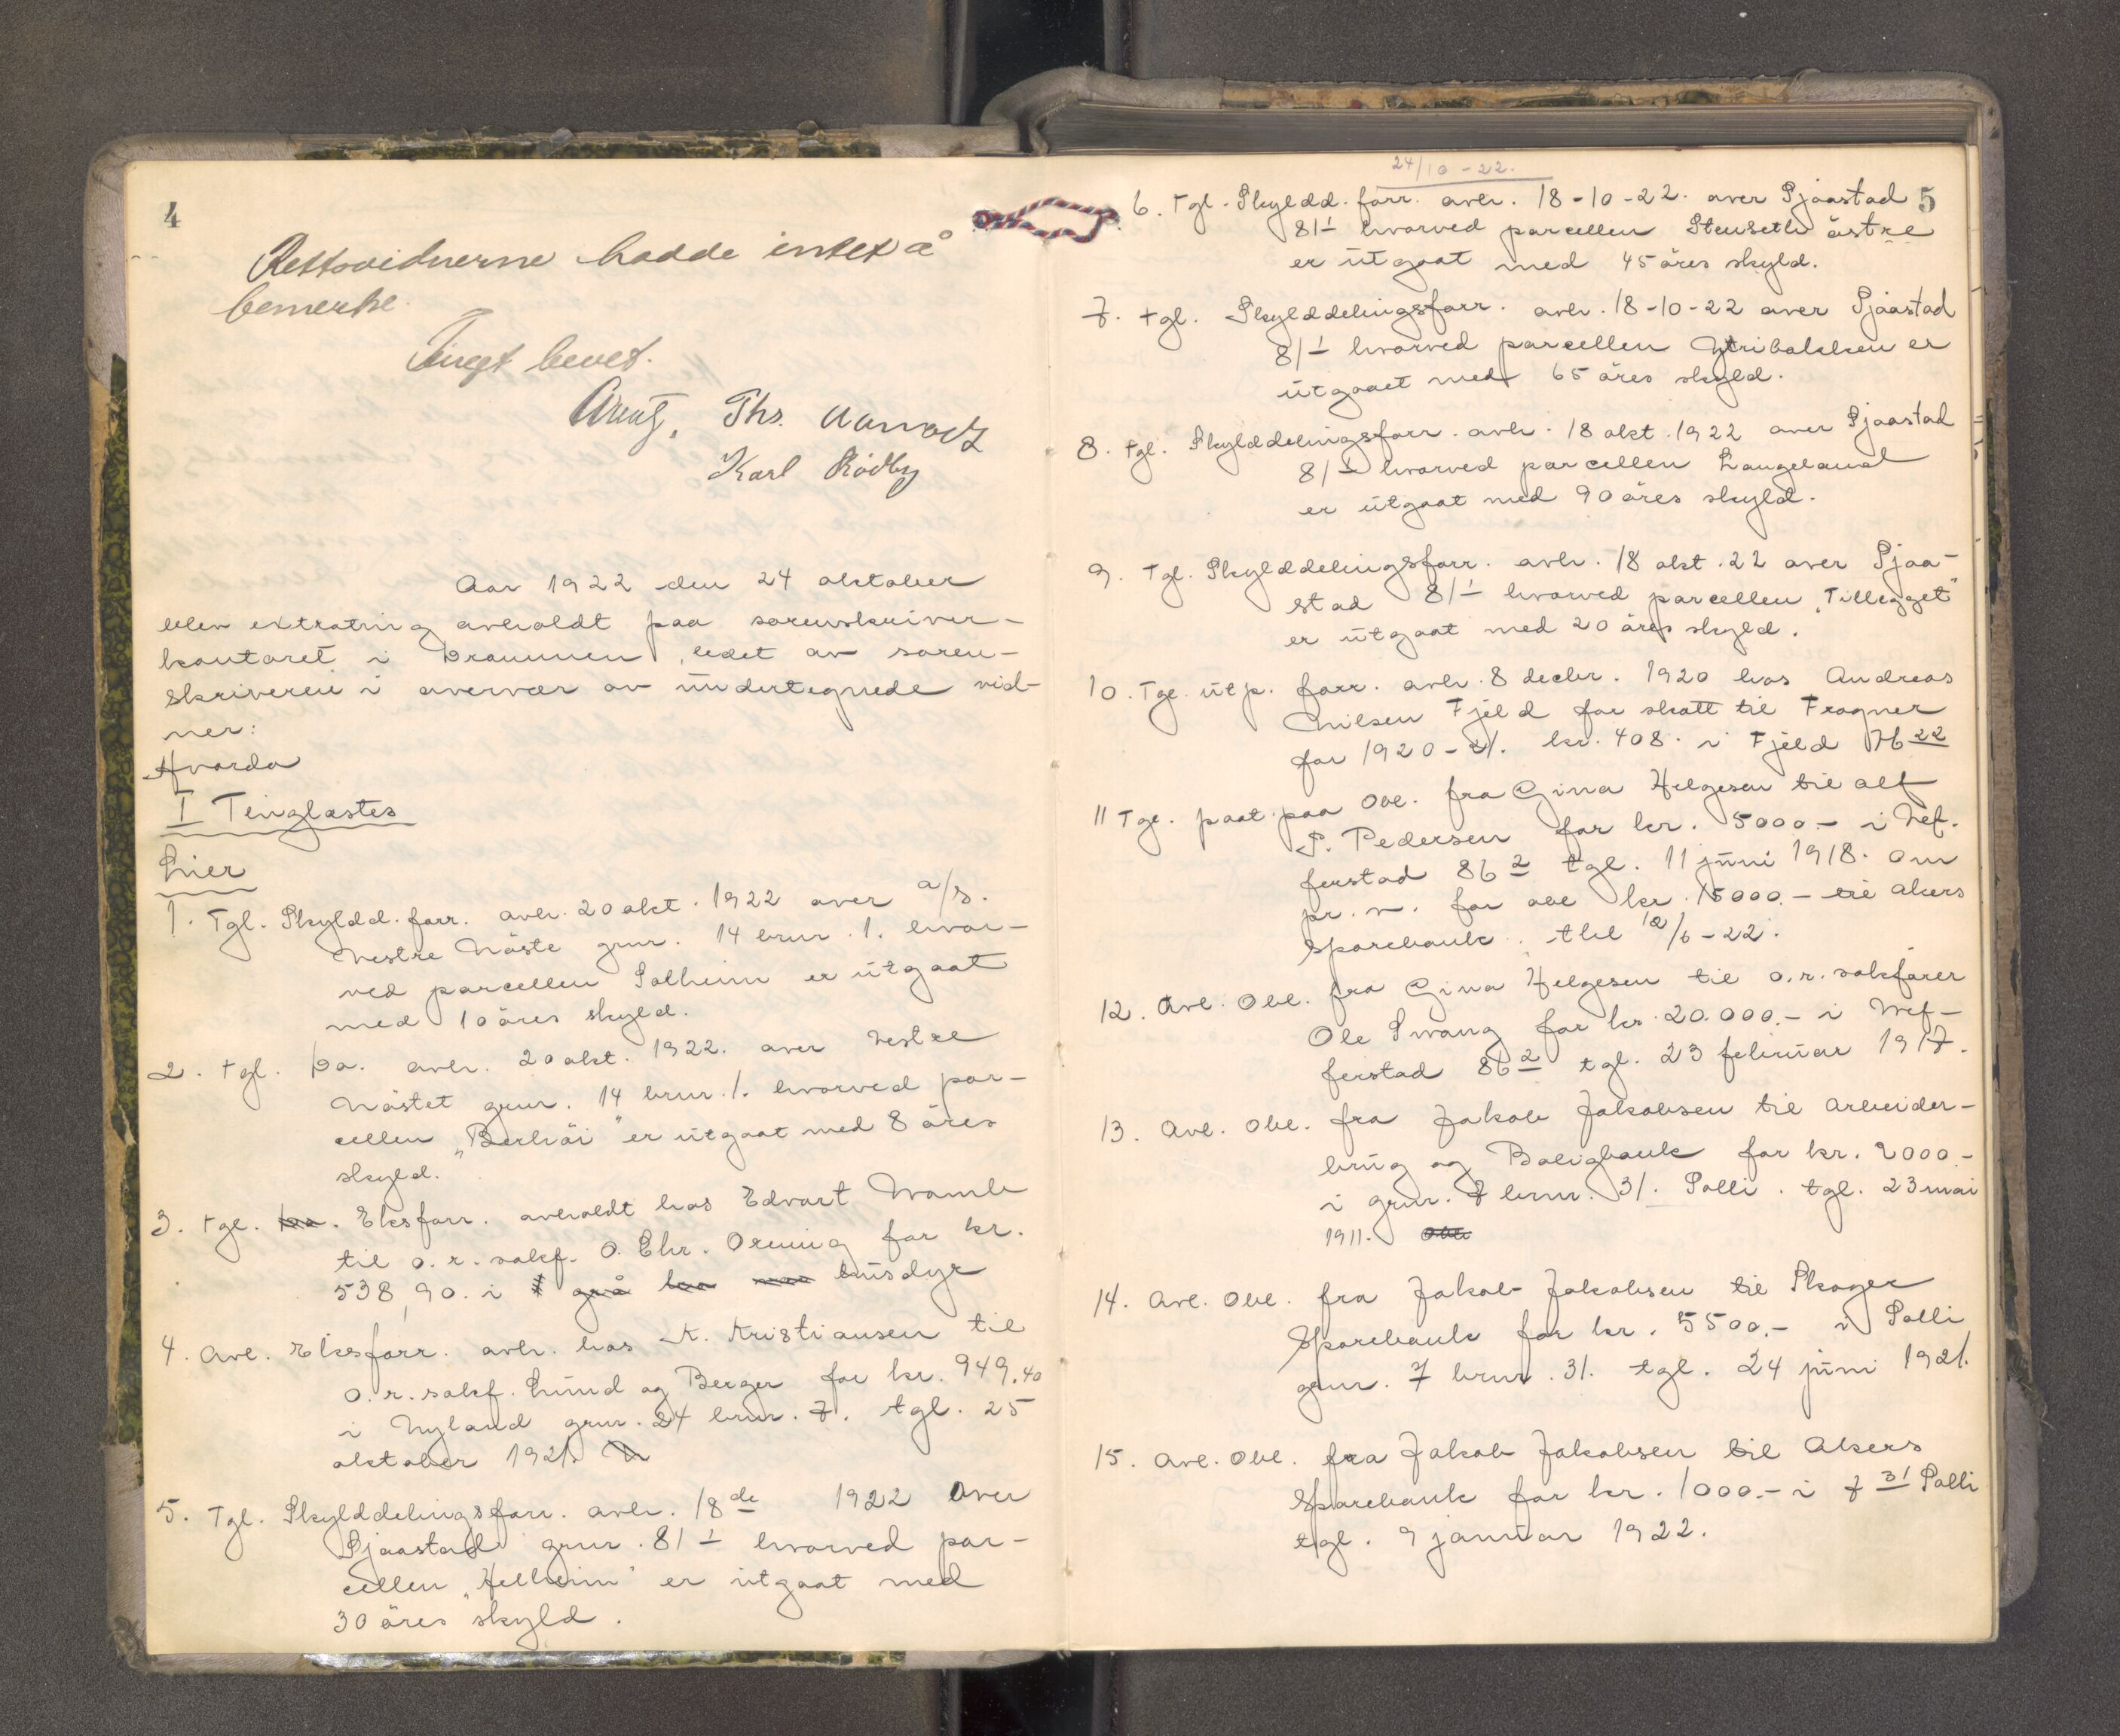 4
Rettsvidnerne hadde intet å
bemerke.
Tinget hevet.
Ths.
Karl Rödby
Aar 1922 den 24 oktober
blev extrating avholdt paa sorenskriver-
kontoret i Drammen, ledet av soren-
skriveren i overvær av undertegnede vid-
ner:
Hvorda
I Tinglæstes
Lier
1. Tgl. Skyldd. forr. avh. 20 okt. 1922 over a/s.
Vestre Nöste gnr. 14 brnr. 1. hvor-
ved parcellen Solheim er utgaat
med 10 öres skyld.
2. Tgl. Do. avh. 20 okt. 1922. over Vestre
Nöstet gnr. 14 brnr. 1. hvorved par-
cellen „Berhöi" er utgaat med 8 öres
skyld.
3. Tgl. Eksforr. avholdt hos Edvart Wamli
til o.r.sakf. O. Chr. Orning for kr.
538,90. i husdyr
4. Avl. Eksforr. avh. hos K. Kristiansen til
o.r.sakf. Lund og Berger for kr. 949.40
i Nyland gnr. 24 brnr. 7. tgl. 25
oktober 1921.
5. Tgl. Skylddelingsforr. avh. 18de 1922 over
Sjaastad gnr. 81 1 hvorved par-
cellen „Helheim" er utgaat med
30 öres skyld.
24/10-22.
5
6. Tgl. Skyldd. forr. avh. 18-10-22. over Sjaastad
81 1 hvorved parcellen Stenseth östre
er utgaat med 45 öres skyld.
7. Tgl. Skylddelingsforr. avh. 18-10-22 over Sjaastad
81 1 hvorved parcellen er
utgaaet med 65 öres skyld.
8. Tgl. Skylddelingsforr. avh. 18 okt. 1922 over Sjaastad
81 1 hvorved parcellen Langeland
er utgaat med 90 öres skyld.
9. Tgl. Skylddelingsforr. avh. 18 okt. 22 over Sjaa-
stad 81 1 hvorved parcellen „Tillegget"
er utgaat med 20 öres skyld.
10. Tgl. utp. forr. avh. 8 decbr. 1920 hos Andreas
Nilsen Fjeld for skatt til Frogner
for 1920-21. kr. 408. i Fjeld 76 22
11 Tgl. paat. paa Obl. fra Gina Helgesen til Alf
P. Pedersen for kr. 5000.- i Vef-
ferstad 86 2 tgl. 11 juni 1918. om
pr. v. for obl kr. 15000.- til Akers
Sparebank. tbl 12/6-22.
12. Avl. Obl. fra Gina Helgesen til o.r.sakförer
Ole Svang for kr. 20.000.- i Vef-
ferstad 86 2 tgl. 23 februar 1917.
13. Avl. Obl. fra Jakob Jakobsen til Arbeider-
brug og Boligbank for kr. 2000.-
i gnr. 7 brnr. 31. Solli. tgl. 23 mai
1911.
14. Avl. Obl. fra Jakob Jakobsen til Skoger
Sparebank for kr. 5500.- i Solli
gnr. 7 brnr. 31. tgl. 24 juni 1921.
15. Avl. Obl. fra Jakob Jakobsen til Akers
Sparebank for kr. 1000.- i 7 31 Solli
tgl. 9 januar 1922.